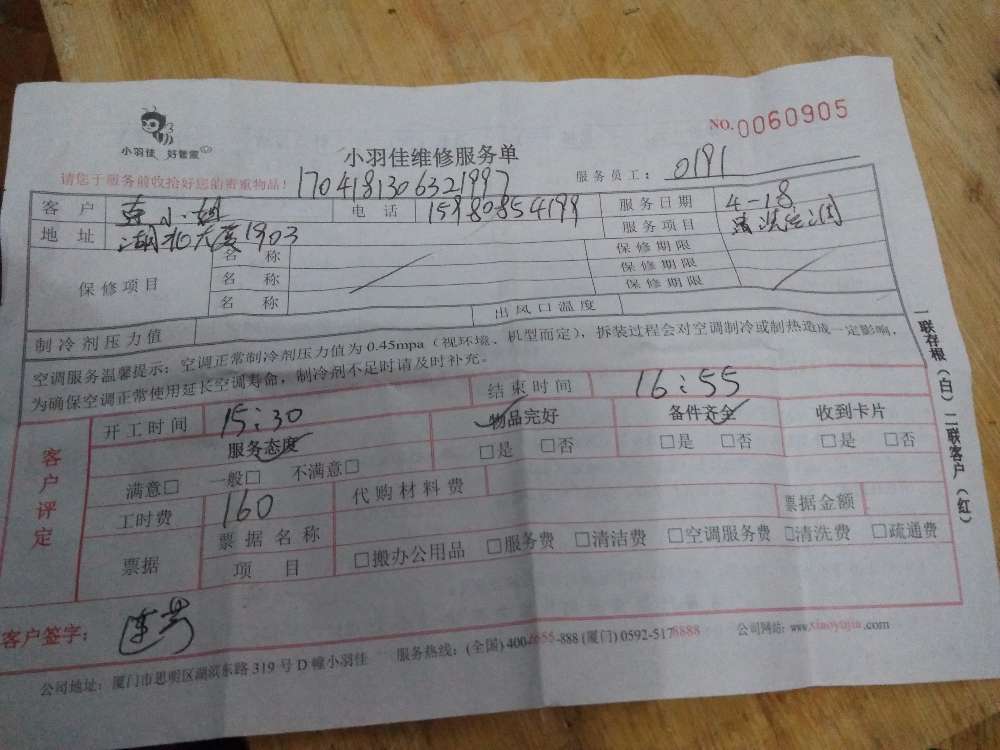 小羽佳 好管家
NO.0060905
小羽佳维修服务单
请您于服务前收拾好您的贵重物品！ 1704181306321997 服务员工： 0191
客户 小姐 电话 15980854199 服务日期 4-18
地址 湖北大厦1903 服务项目 清洗
保修项目 名称 保修期限
名称 保修期限
名称 保修期限
制冷剂压力值 出风口温度
空调服务温馨提示：空调正常制冷剂压力值为0.45mpa（视环境、机型而定），拆装过程会对空调制冷或制热造成一定影响，
为确保空调正常使用延长空调寿命，制冷剂不足时请及时补充。
客户评定 开工时间 15:30 结束时间 16:55
服务态度 物品完好 备件齐全 收到卡片
满意□ 一般□ 不满意□ □是 □否 □是 □否 □是 □否
工时费 160 代购材料费 票据金额
票据 票据名称
项目 □搬办公用品 □服务费 □清洁费 □空调服务费 □清洗费 □疏通费
一联存根（白）二联客户（红）
客户签字：
公司地址：厦门市思明区湖滨东路319号D幢小羽佳 服务热线：(全国) 400-6655-888 (厦门) 0592-5178888 公司网站：www.xiaoyujia.com